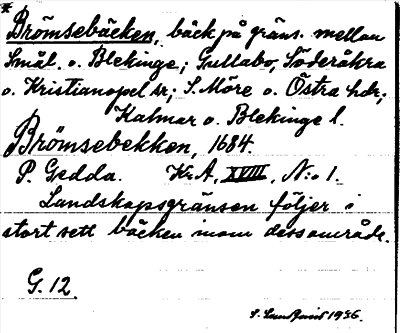 *
Brömsebäcken, bäck på gräns. mellan
Smål. o. Blekinge; Gullabo, Söderåkra
o. Kristianopel sr; S. Möre o. Östra hdr;
Kalmar o. Blekinge l.
Brömsebekken, 1684.
P. Gedda. Kr.A, XVIII, N:o 1.
Landskapsgränsen följer i
stort sett bäcken inom dess område.
G. 12.
1936.